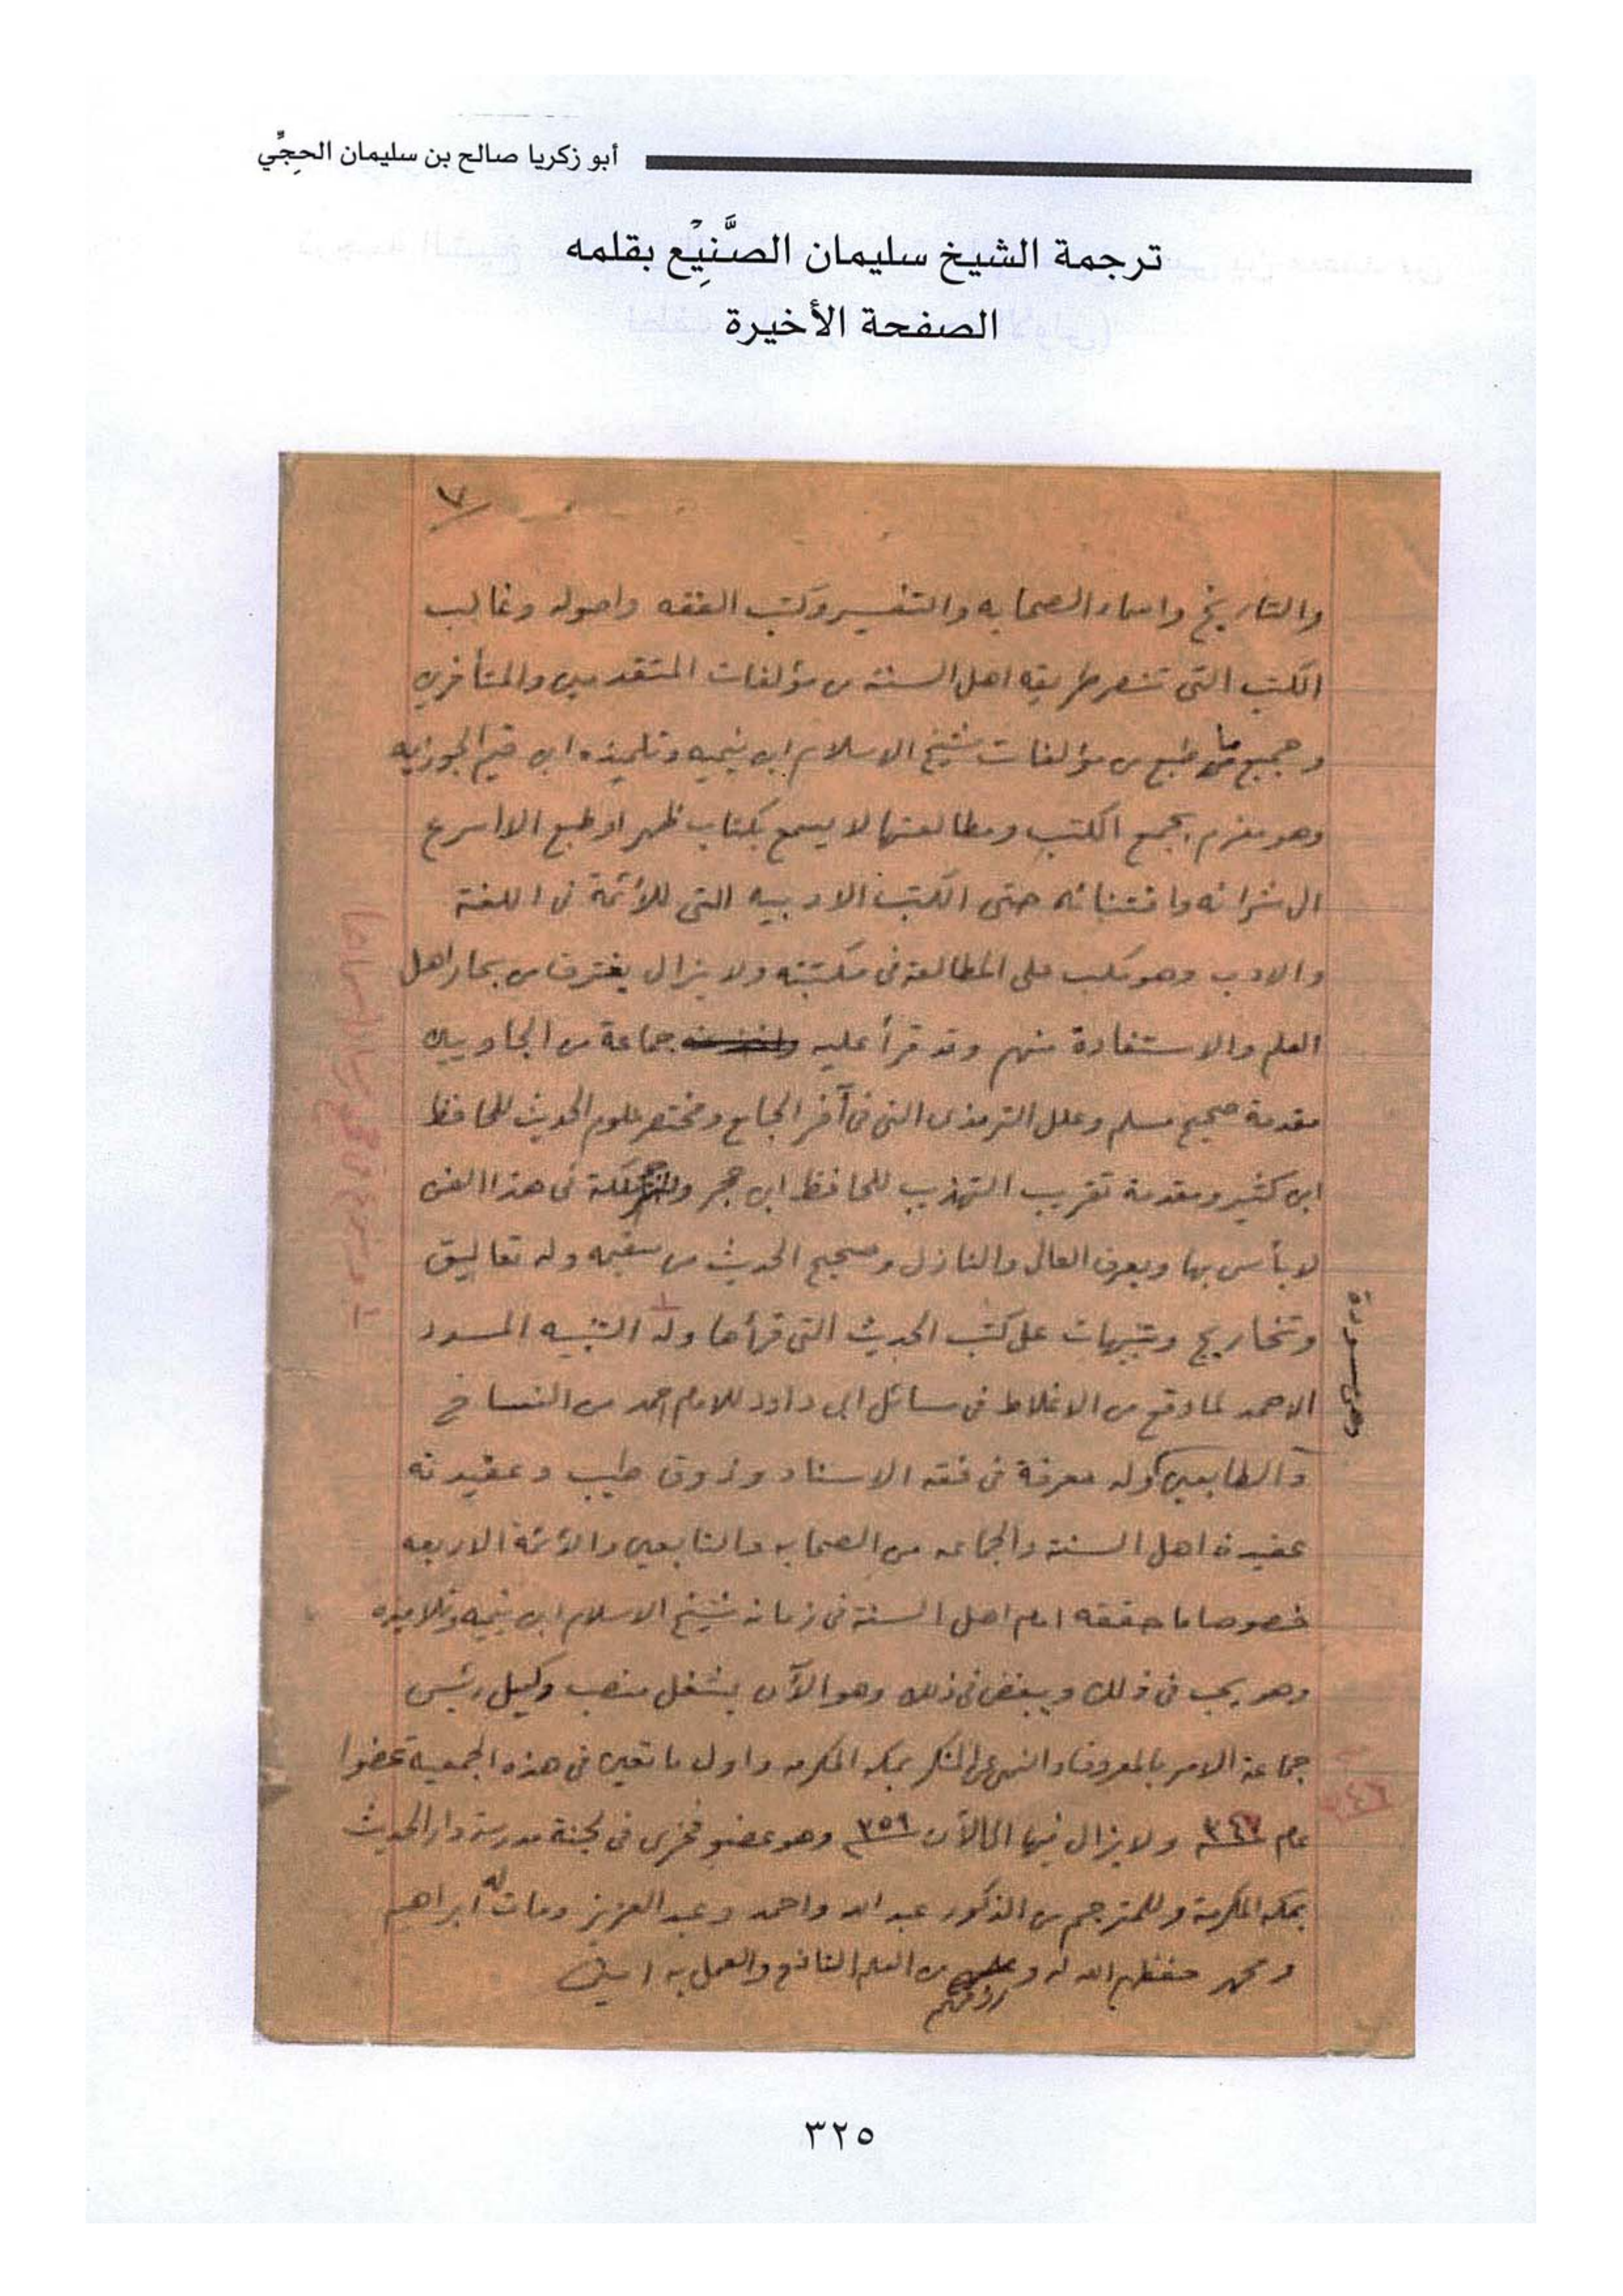 أبو زكريا صالح بن سليمان الحجِّي
ترجمة الشيخ سليمان الصَّنِيْع بقلمه
الصفحة الأخيرة
٧
والتاريخ واسماء الصحابه والتفسير وكتب الفقه واصوله وغالب
الكتب التى تنصر طريقه اهل السنة من مؤلفات المتقدمين والمتأخرين
وجميع ما طبع من مؤلفات شيخ الاسلام ابن تيميه وتلميذه ابن قيم الجوزيه
وهو مغرم بجمع الكتب ومطالعتها لا يسمع بكتاب ظهر او طبع الا اسرع
الى شرائه واقتنائه حتى الكتب الادبيه التى للأئمة فى اللغة
والادب وهو مكب على المطالعة فى مكتبته ولا يزال يغترف من بحار اهل
العلم والاستفادة منهم وقد قرأ عليه جماعة من الجاويين
مقدمة صحيح مسلم وعلل الترمذى التى فى آخر الجامع ومختصر علوم الحديث للحافظ
ابن كثير ومقدمة تقريب التهذيب للحافظ ابن حجر وله ملكة فى هذا الفن
لا بأس بها ويعرف العالى والنازل وصحيح الحديث من سقيمه وله تعاليق
وتخاريج وتنبيهات على كتب الحديث التى قرأها وله التنبيه المسدد
وهى مسودة
الاحمد لما وقع من الاغلاط فى مسائل ابى داود للامام احمد من النساخ
والطابعين وله معرفة فى فقه الاسناد وذوق طيب وعقيدته
عقيدة اهل السنة والجماعه من الصحابه والتابعين والأئمة الاربعه
خصوصا ما حققه امام اهل السنة فى زمانه شيخ الاسلام ابن تيميه وتلاميذه
وهو يحب فى ذلك ويبغض فى ذلك وهو الآن يشغل منصب وكيل رئيس
جماعة الامر بالمعروف والنهى عن المنكر بمكه المكرمه واول ما تعين فى هذه الجمعيه عضوا
عام ولا يزال فيها الى الآن ٣٥٩ وهو عضو فخرى فى لجنة مدرسة دار الحديث
بمكه المكرمة وللمترجم من الذكور عبد الله واحمد وعبد العزيز ومات له ابراهيم
ومحمد حفظهم الله له ورزقهم من العلم النافع والعمل به امين
٣٢٥